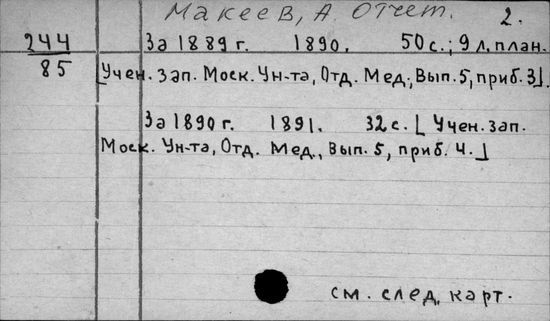 Макеев, А. Отчет. 2.
244 За 1889 г. 1890. 50 с.; 9 л. план.
85 [Учен. зап. Моск. Ун-та, Отд. Мед., Вып. 5, приб. 3].
За 1890 г. 1891. 32 с. [Учен. зап.
Моск. Ун-та, Отд. Мед., Вып. 5, приб. 4.]
см. след. карт.